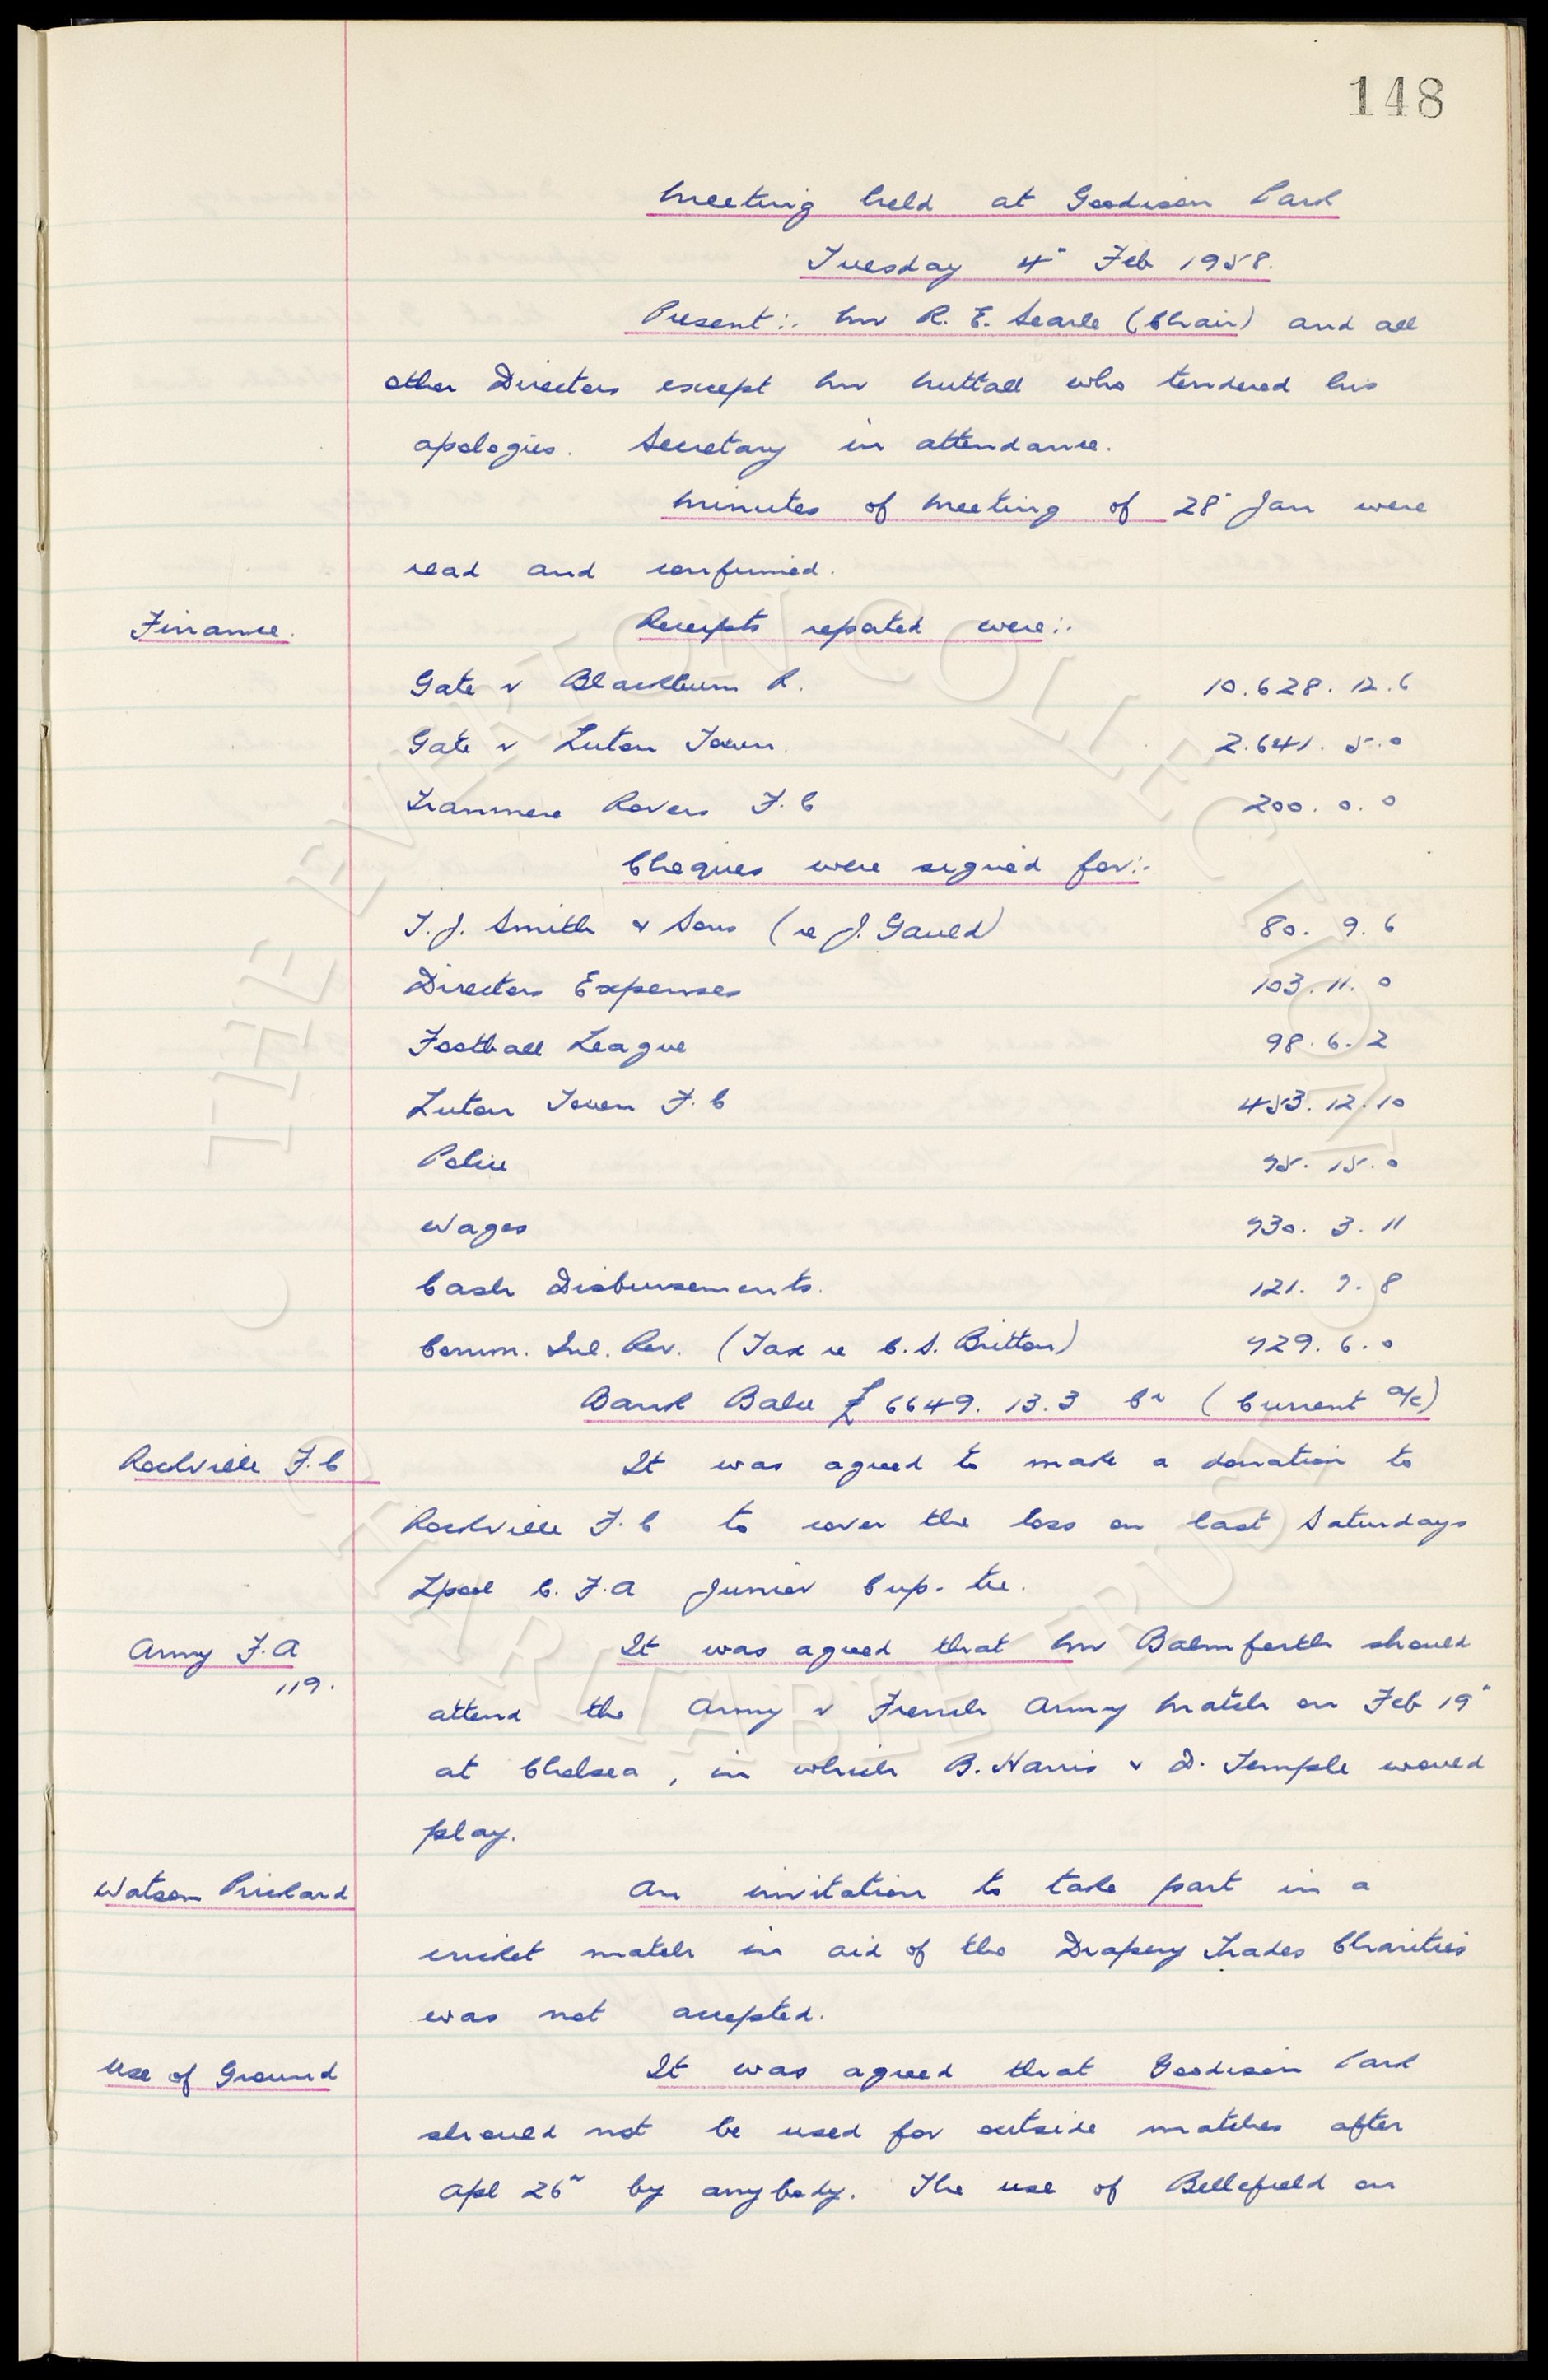 148
Meeting held at Goodison Park
Tuesday 4" Feb 1958.
Present:- Mr R. E. Searle (Chair) and all
other Directors except Mr Nuttall who tendered his
apologies. Secretary in attendance.
Minutes of Meeting of 28" Jan were
read and confirmed.
Finance. Receipts reported were:-
Gate v Blackburn R. 10.628. 12. 6
Gate v Luton Town. 2.641. 5. 0
Tranmere Rovers F. C 200. 0. 0
Cheques were signed for:-
T. J. Smith & Sons (re J. Gauld) 80. 9. 6
Directors Expenses 103. 11. 0
Football League 98. 6. 2
Luton Town F. C 453. 12. 10
Police 75. 15. 0
Wages 730. 3. 11
Cash Disbursements. 121. 7. 8
Comm. Inl. Rev. (Tax re C. S. Britton) 729. 6. 0
Bank Balce £6649. 13. 3 Cr (Current a/c)
Rockville F. C It was agreed to make a donation to
Rockville F. C to cover the loss on last Saturdays
Lpool C. F. A Junior Cup-tie.
Army F. A It was agreed that Mr Balmforth should
119.
attend the Army v French Army Match on Feb 19"
at Chelsea, in which B. Harris & D. Temple would
play.
Watson Prickard An invitation to take part in a
cricket match in aid of the Drapery Trades Charities
was not accepted.
Use of Ground It was agreed that Goodison Park
should not be used for outside matches after
Apl 26" by anybody. The use of Bellefield on
THE EVERTON COLLECTION
CHARITABLE TRUST